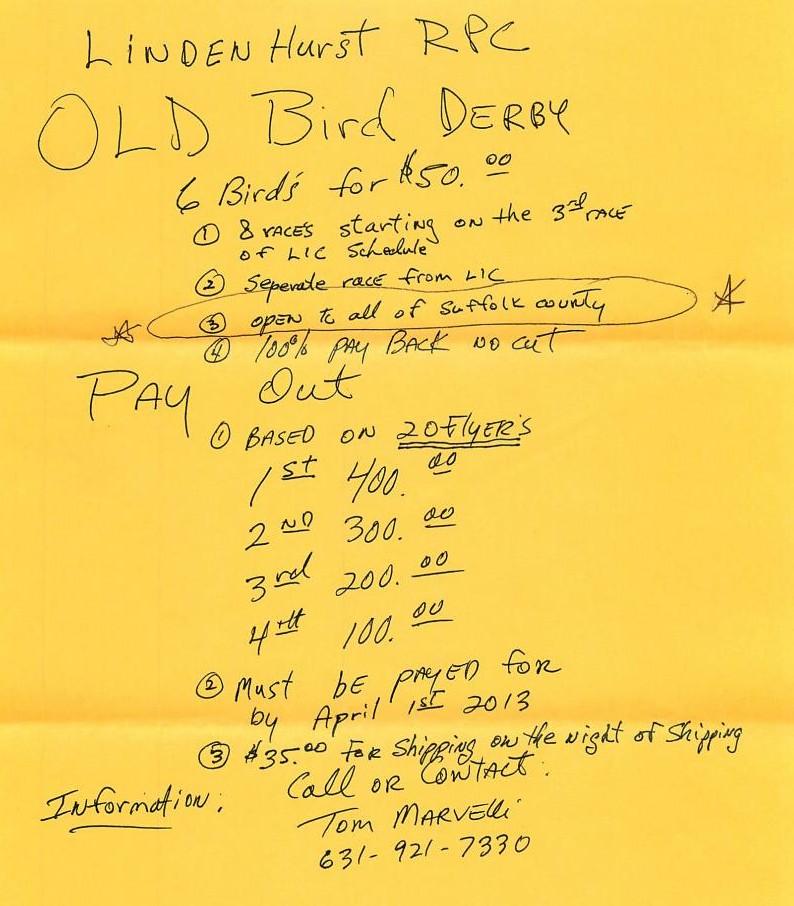 LINDENHurst RPC
OLD Bird DERBY
6 Bird's for $50.00
① 8 races starting on the 3rd race
of LIC Schedule
② Seperate race from LIC
③ open to all of Suffolk county
④ 100% PAY BACK NO CUT
PAY Out
① BASED ON 20 Flyer's
1st 400.00
2ND 300.00
3rd 200.00
4th 100.00
② Must be PAYED for
by April 1st 2013
③ $35.00 For Shipping on the night of Shipping
Call OR Contact:
Information: Tom MARVElli
631-921-7330